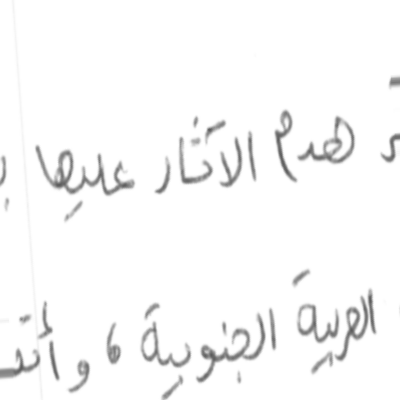 هدم الآثار عليها
العربية الجنوبية ، وأنت